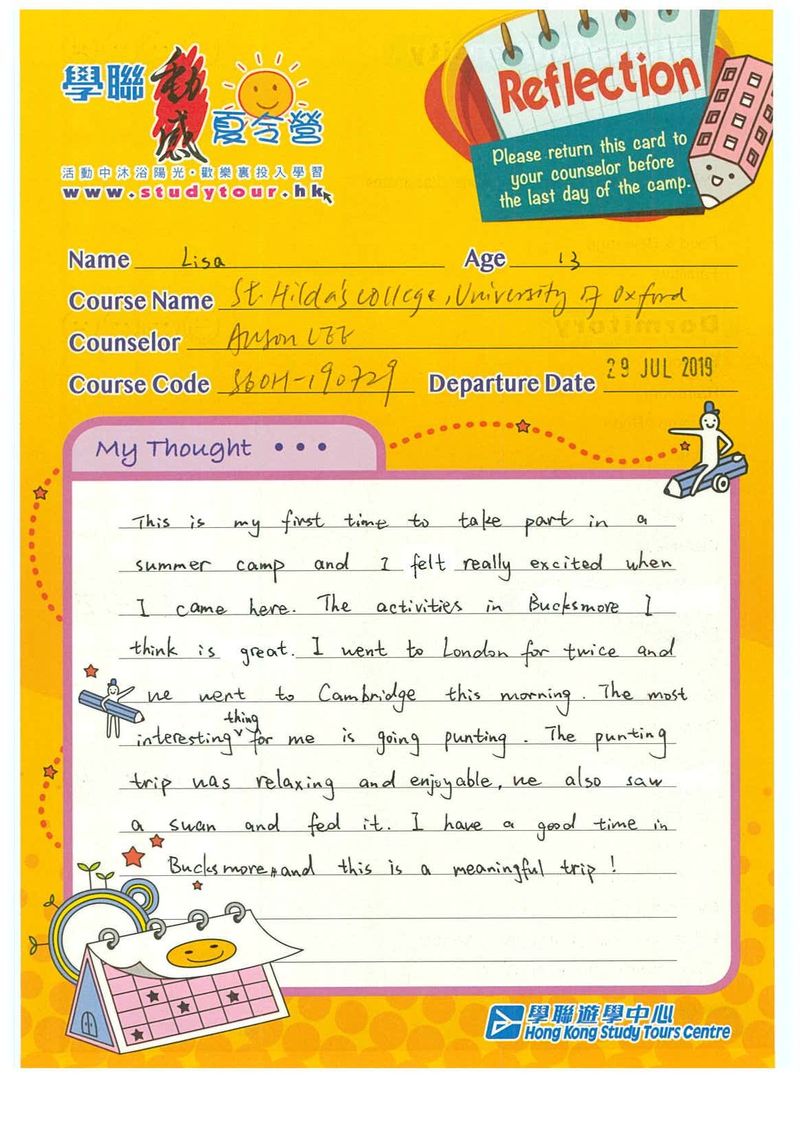 學聯 動感 夏令營
活動中沐浴陽光・歡樂裏投入學習
www.studytour.hk
Reflection
Please return this card to
your counselor before
the last day of the camp.
Name Lisa Age 13
Course Name St. Hilda's College, University of Oxford
Counselor LEE
Course Code SGOH-190729 Departure Date 29 JUL 2019
My Thought • • •
This is my first time to take part in a
summer camp and I felt really excited when
I came here. The activities in Bucksmore I
think is great. I went to London for twice and
we went to Cambridge this morning. The most
interesting thing for me is going punting. The punting
trip was relaxing and enjoyable, we also saw
a swan and fed it. I have a good time in
Bucksmore, and this is a meaningful trip!
學聯遊學中心
Hong Kong Study Tours Centre